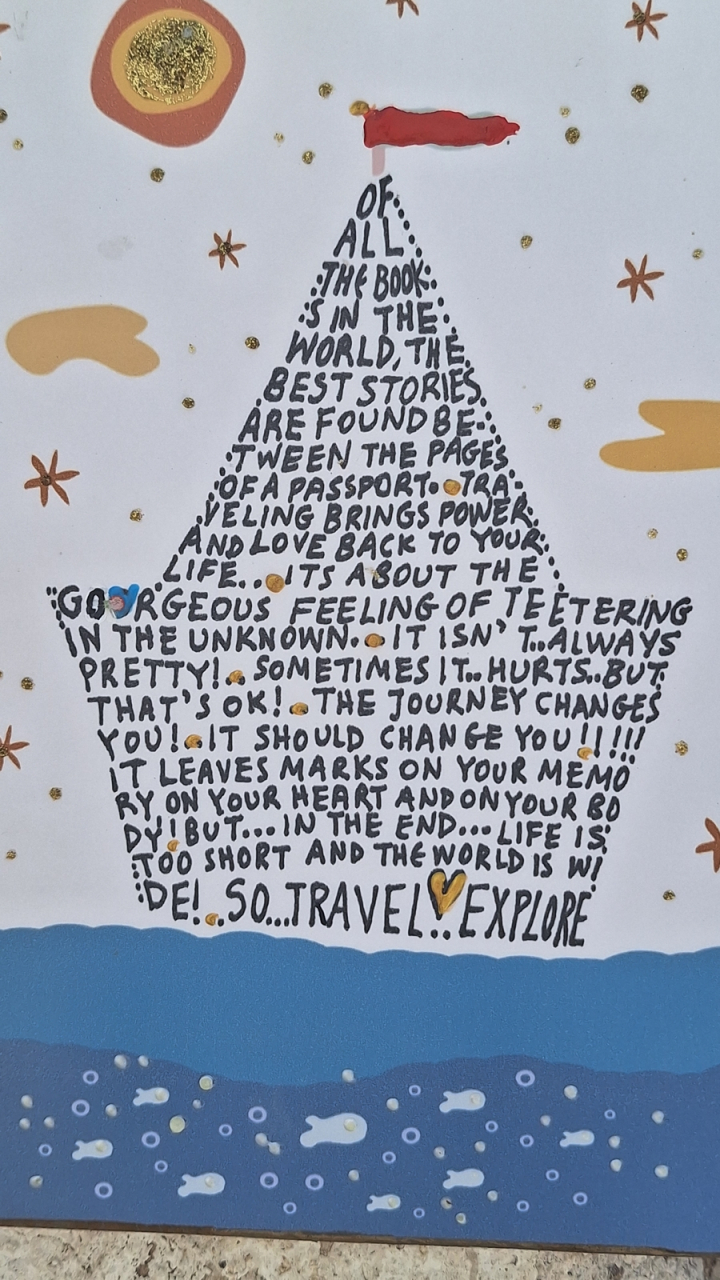 OF
ALL
THE BOOK
S IN THE
WORLD, THE
BEST STORIES
ARE FOUND BE-
TWEEN THE PAGES
OF A PASSPORT. TRA
VELING BRINGS POWER
AND LOVE BACK TO YOUR
LIFE... ITS ABOUT THE
GORGEOUS FEELING OF TEETERING
IN THE UNKNOWN.. IT ISN'T..ALWAYS
PRETTY!.. SOMETIMES IT.. HURTS..BUT
THAT'S OK!. THE JOURNEY CHANGES
YOU!. IT SHOULD CHANGE YOU!!!!!
IT LEAVES MARKS ON YOUR MEMO
RY ON YOUR HEART AND ON YOUR BO
DY! BUT... IN THE END... LIFE IS
TOO SHORT AND THE WORLD IS WI
DE!.. SO...TRAVEL..EXPLORE